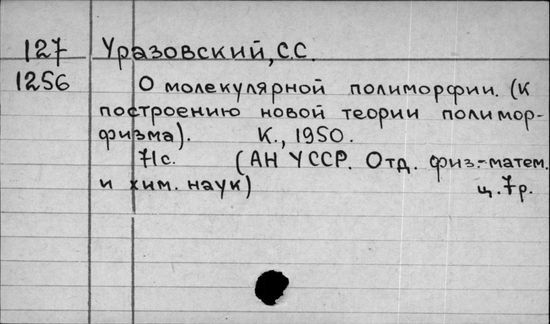 127 Уразовский, С.С.
1256 О молекулярной полиморфии. (К
построению новой теории полимор-
физма). К., 1950.
71с. (АН УССР. Отд. физ.-матем.
и хим. наук)
ц. 7р.